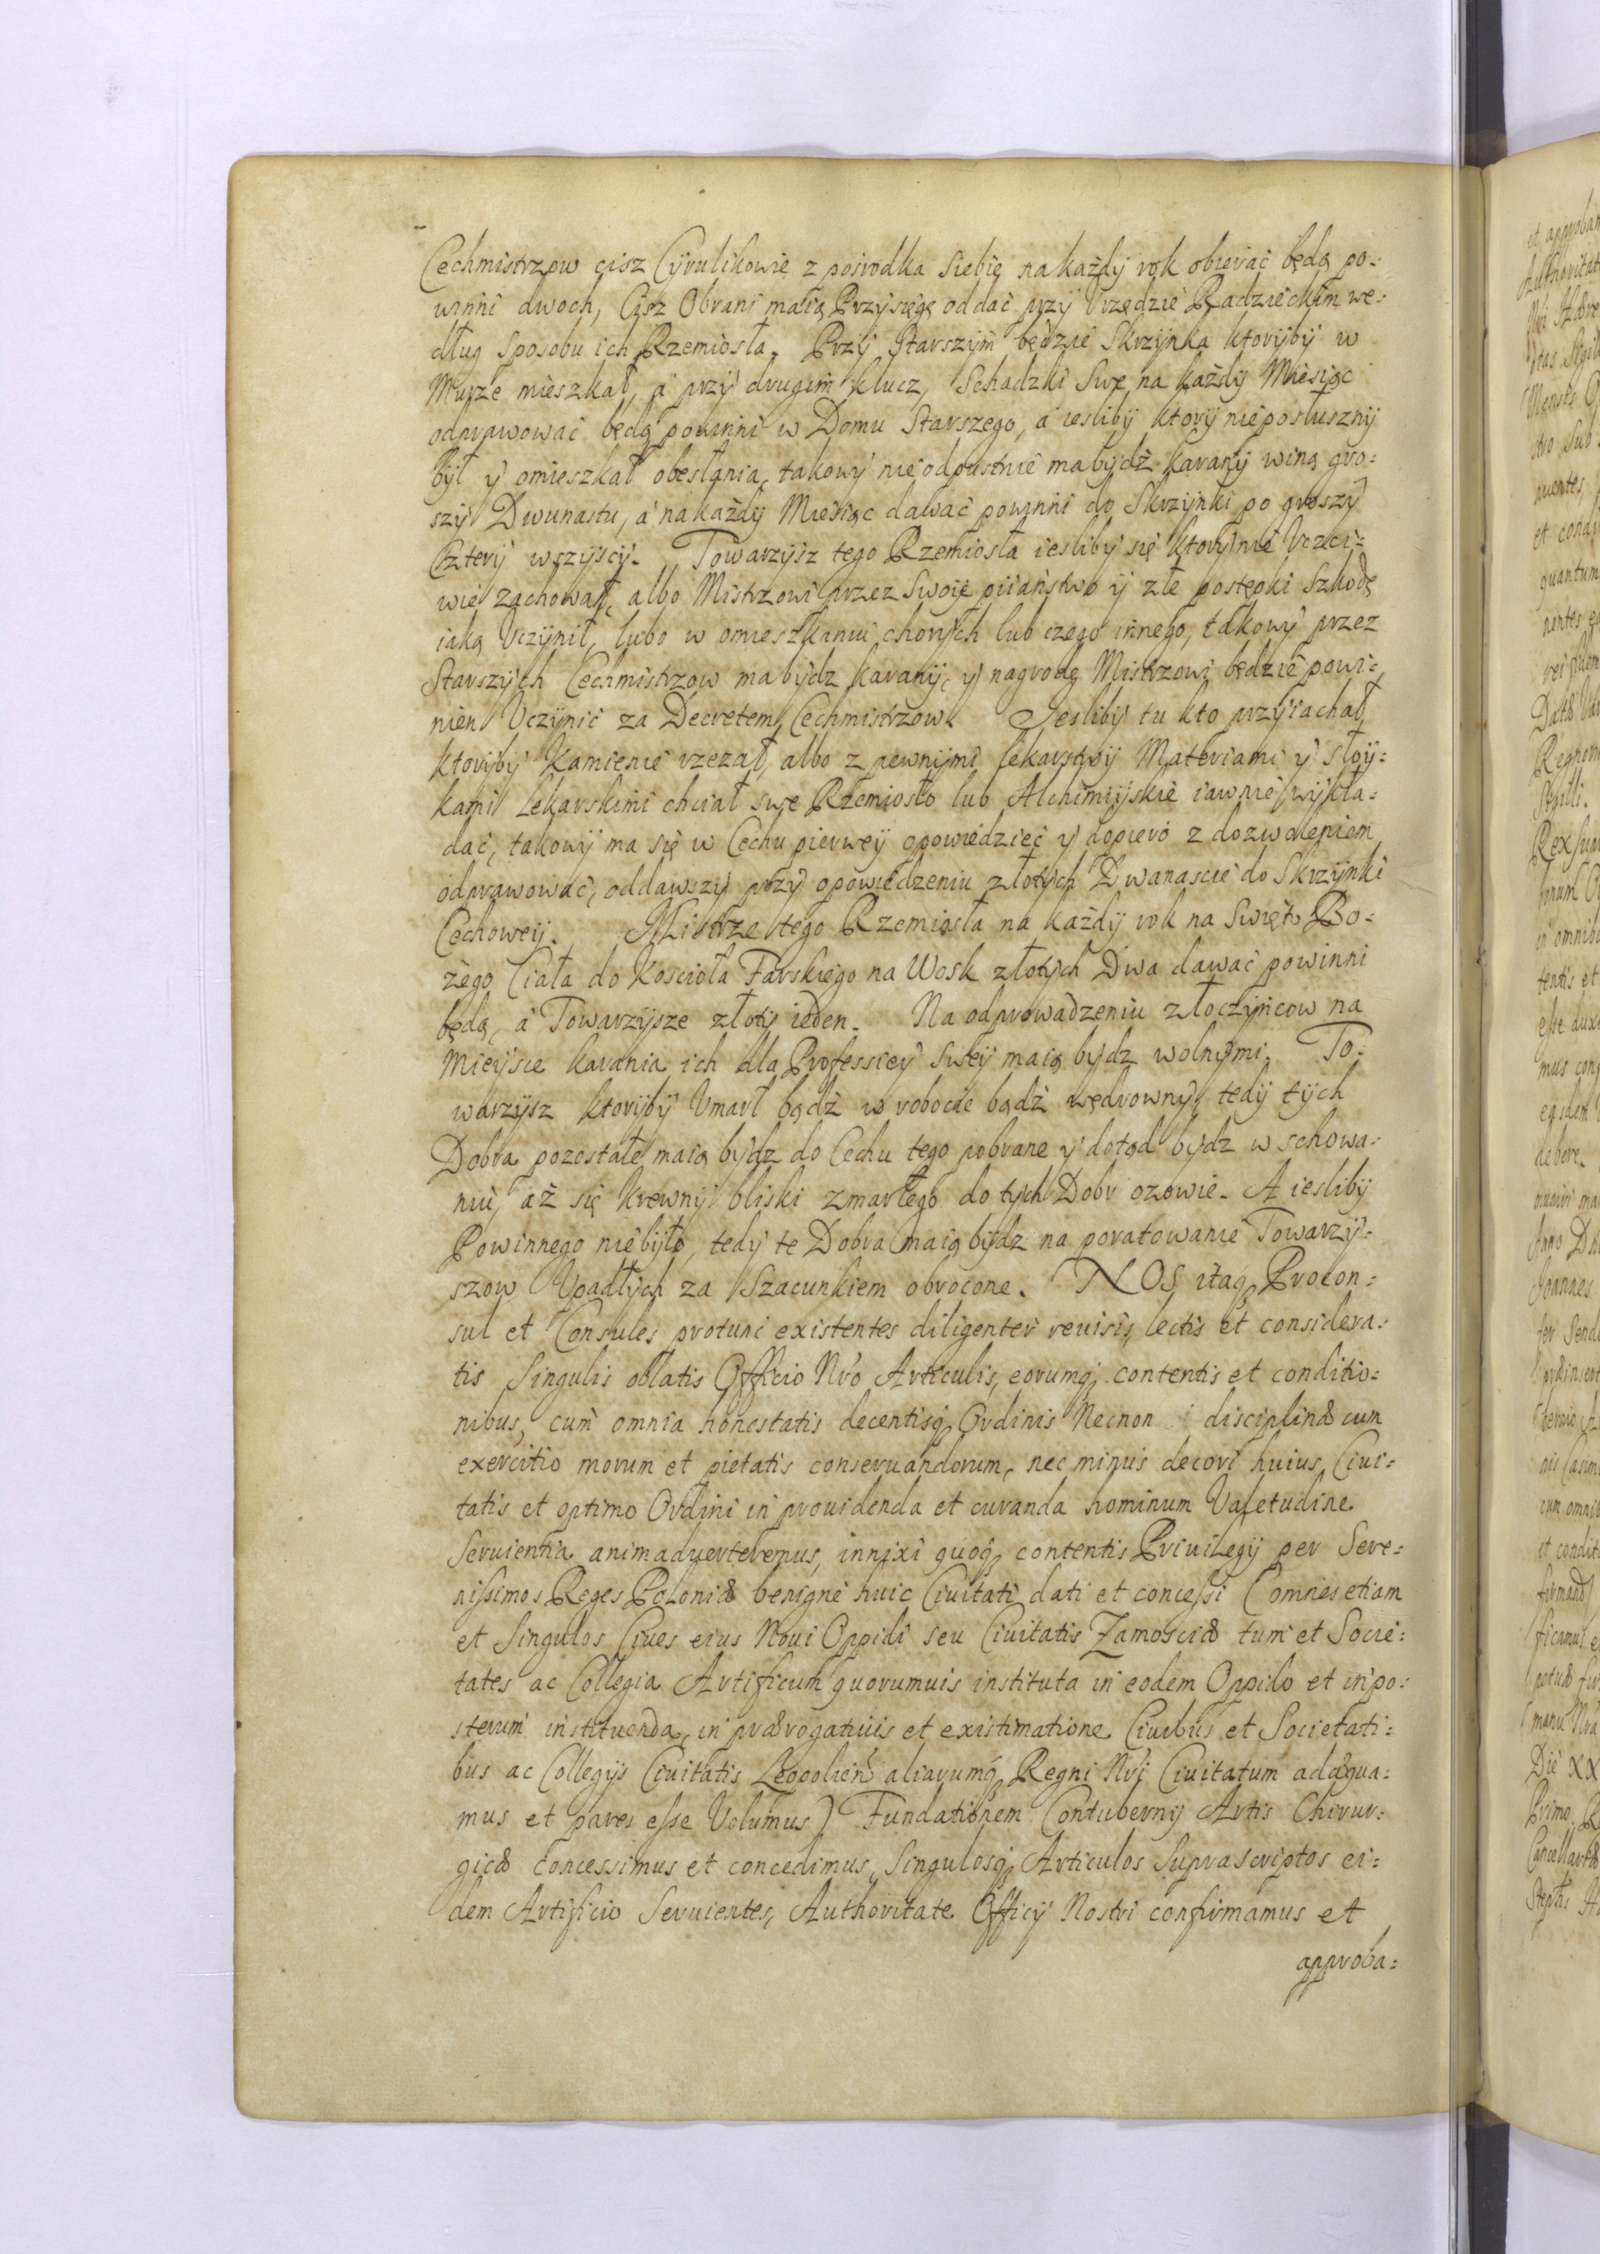 Cechmistrzow cisz Cyrulikowie z pośrodka siebie na każdy rok obierać będą po-
winni dwoch, Cisz Obrani maią Przysięgę oddać przy Vrzędzie Radzieckim we-
dług sposobu ich Rzemiosła. Przy Starszym będzie Skrzynka ktoryby w
Murze mieszkał, á przy drugim klucz, Schadzki swe na każdy Miesiąc
odprawować będą powinni w Domu Starszego, á iesliby ktory nieposłuszny
był y omieszkał obesłania, takowy nieodpustnie ma bydź karany winą gro-
szy Dwunastu, á na każdy Miesiąc dawać powinni do Skrzynki po groszy
Cztery wszyscy. Towarzysz tego Rzemiosła iesliby się ktory nie Vczci-
wie zachował, albo Mistrzowi przez swoie piiaństwo y złe postępki Szkodę
iaką Vczynił, lubo w omieszkaniu chorych lub czego innego, takowy przez
Starszych Cechmistrzow ma bydz karany, y nagrodę Mistrzowi będzie powi-
nien Vczynić za Decretem Cechmistrzow. Jesliby tu kto przyiachał
ktoryby Kamienie rzezał, albo z pewnymi lekarstwy Materiami y słoy-
kami Lekarskimi chciał swe Rzemiosło lub Alchimiyskie iawnie wykła-
dać, takowy ma się w Cechu pierwey opowiedzieć y dopiero z dozwoleniem
odprawować, oddawszy przy opowiedzeniu złotych Dwanascie do Skrzynki
Cechowey. Mistrze tego Rzemiosła na każdy rok na Swięto Bo-
żego Ciała do Kościoła Farskiego na Wosk złotych Dwa dawać powinni
będą, á Towarzysze złoty ieden. Na odprowadzeniu złoczyńcow na
Mieysce karania ich dla Professiey swey maią bydz wolnymi. To-
warzysz ktoryby Vmarł bądź w robocie bądź wędrowny, tedy tych
Dobra pozostałe maią bydz do Cechu tego pobrane y dotąd bydz w schowa-
niu, aż się krewny bliski zmarłego do tych Dobr ozowie. A iesliby
Powinnego niebyło, tedy te Dobra maią bydz na poratowanie Towarzy-
szow Vpadłych za Szacunkiem obrocone. NOS itaq Procon-
sul et Consules protunc existentes diligenter reuisis, lectis et considera-
tis Singulis oblatis Officio Nro Articulis, eorumq contentis et conditio-
nibus, cum omnia honestatis decentisq Ordinis Necnon disciplinæ cum
exercitio morum et pietatis conseruandorum, nec minus decori huius Ciui-
tatis et optimo Ordini in prouidenda et curanda hominum Valetudine
Seruientia animaduerteremus, innixi quoq contentis Priuilegij per Sere-
nissimos Reges Poloniæ benigne huic Ciuitati dati et concessi (omnes etiam
et Singulos Ciues eius Noui Oppidi seu Ciuitatis Zamosciæ tum et Socie-
tates ac Collegia Artificum quorumuis instituta in eodem Oppido et in po-
sterum instituenda, in prærogatiuis et existimatione Ciuibus et Societati-
bus ac Collegijs Ciuitatis Leopolien aliarumq Regni Nri Ciuitatum adæqua-
mus et pares esse Volumus) Fundationem Contubernij Artis Chirur-
gicæ concessimus et concedimus, Singulosq Articulos Suprascriptos ei-
dem Artificio Seruientes, Authoritate Officij Nostri confirmamus et
approba-